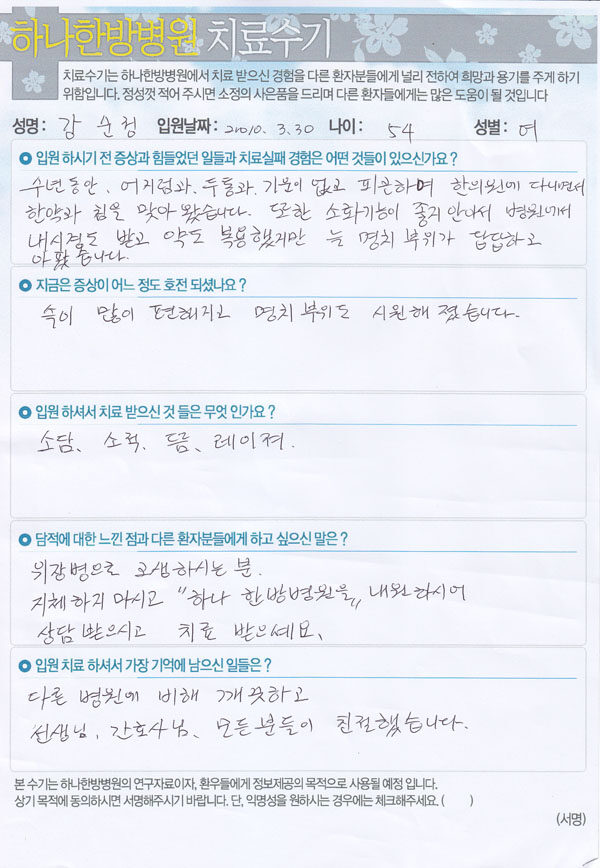 하나한방병원 치료수기
치료수기는 하나한방병원에서 치료 받으신 경험을 다른 환자분들에게 널리 전하여 희망과 용기를 주게 하기
위함입니다. 정성껏 적어 주시면 소정의 사은품을 드리며 다른 환자들에게는 많은 도움이 될 것입니다
성명 : 감 순정 입원날짜 : 2010. 3. 30 나이 : 54 성별 : 여
입원 하시기 전 증상과 힘들었던 일들과 치료실패 경험은 어떤 것들이 있으신가요 ?
수년동안, 어지럼과, 두통과, 기운이 없고 피곤하며 한의원에 다니면서
한약과 침을 맞아 왔습니다. 또한 소화기능이 좋지 안아서 병원에서
내시경도 받고 약도 복용했지만 늘 명치 부위가 답답하고
아팠습니다.
지금은 증상이 어느 정도 호전 되셨나요 ?
속이 많이 편해지고 명치 부위도 시원해 졌습니다.
입원 하셔서 치료 받으신 것 들은 무엇 인가요 ?
소담, 소적, 뜸, 레이져.
담적에 대한 느낀 점과 다른 환자분들에게 하고 싶으신 말은 ?
위장병으로 고생하시는 분.
지체하지 마시고 "하나 한방병원을" 내원하시어
상담 받으시고 치료 받으세요.
입원 치료 하셔서 가장 기억에 남으신 일들은 ?
다른 병원에 비해 깨끗하고
선생님, 간호사님, 모든분들이 친절했습니다.
본 수기는 하나한방병원의 연구자료이자, 환우들에게 정보제공의 목적으로 사용될 예정 입니다.
상기 목적에 동의하시면 서명해주시기 바랍니다. 단, 익명성을 원하시는 경우에는 체크해주세요. ( )
(서명)